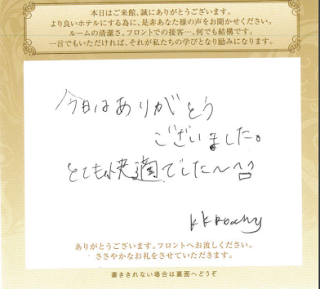 本日はご来館、誠にありがとうございます。
より良いホテルにする為に、是非あなた様の声をお聞かせください。
ルームの清潔さ。フロントでの接客…、何でも結構です。
一言でもいただければ、それが私たちの学びとなり励みになります。
今日はありがとう
ございました。
とても快適でした〜
ありがとうございます。フロントへお渡しください。
ささやかなお礼をさせていただきます。
書ききれない場合は裏面へどうぞ